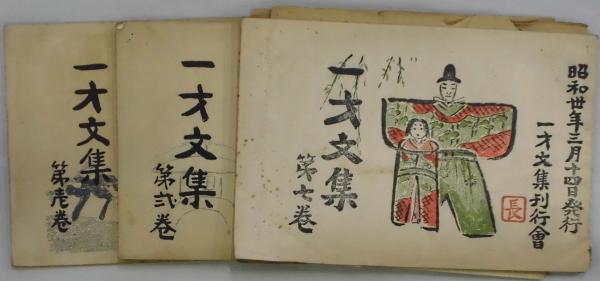 昭和卅年三月十四日発行
一才文集刊行會
長
一才文集
第七巻
一才文集
第弐巻
一才文集
第壱巻